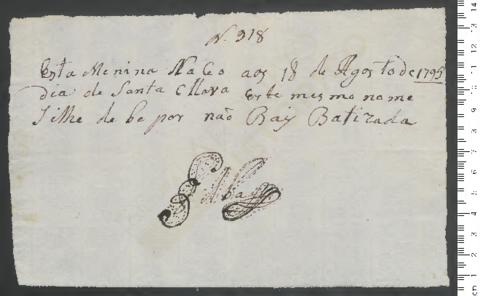 N. 318
Esta Menina Naceo aos 18 de Agosto de 1795
dia de Santa Clara Este mesmo nome
Silhe de be por não Bay Batizada